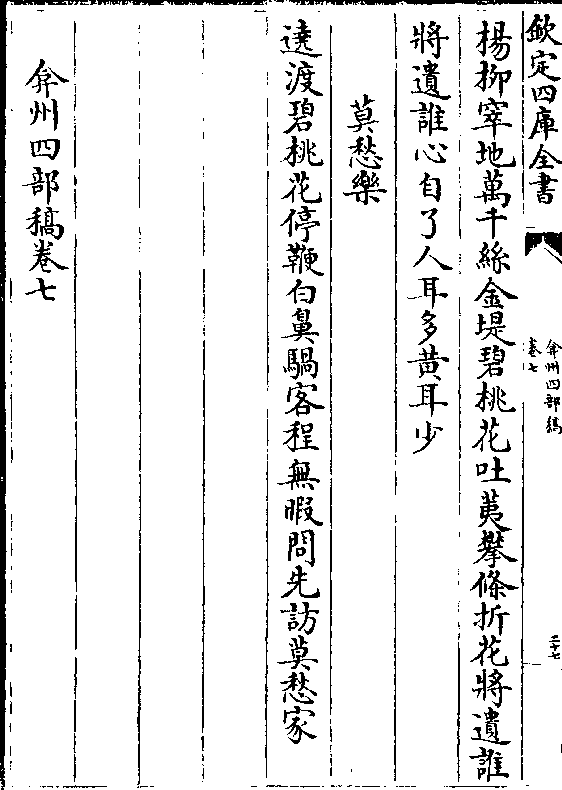 欽定四庫全書
弇州四部稿
卷七
二十七
楊柳窣地萬千絲金堤碧桃花吐荑攀條折花將遺誰
將遺誰心自了人耳多黄耳少
莫愁樂
遶渡碧桃花停鞭白鼻騧客程無暇問先訪莫愁家
弇州四部稿卷七